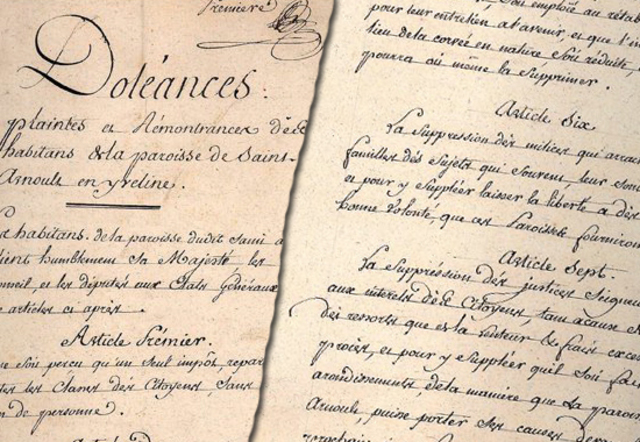 Premiere
Doléances:
plaintes et Rémontrances des
habitans de la paroisse de Saint-
Arnoult en yveline.
habitans de la paroisse dudit Saint a
humblement sa Majesté les
et les députés aux Etats Généraux
articles ci après.
Article Prémier.
soit perçu qu'un seul impôt, repar
les Clases des Citoyens, sans
de personne.
soit emploïé au réta
pour leur entretien à l'avenir, et que l'i
lieu de la corvée en nature, soit réduite,
pourra où même la supprimer.
Article Six
La Suppression des milices qui arrac
familles des Sujets qui souvent, leur sont
et pour y Suppléer laisser la liberté a des
bonne volonté, que ces Paroisses fourniron
Article Sept.
La Suppréssion des justices Seigneu
aux intérets des Citoyens, tant a cause
des ressorts que de la lenteur & frais exces
procès, et pour y suppléer qu'il soit fai
arondissements, de la maniere que la paroiss
Arnoult, puisse porter ses causes devan